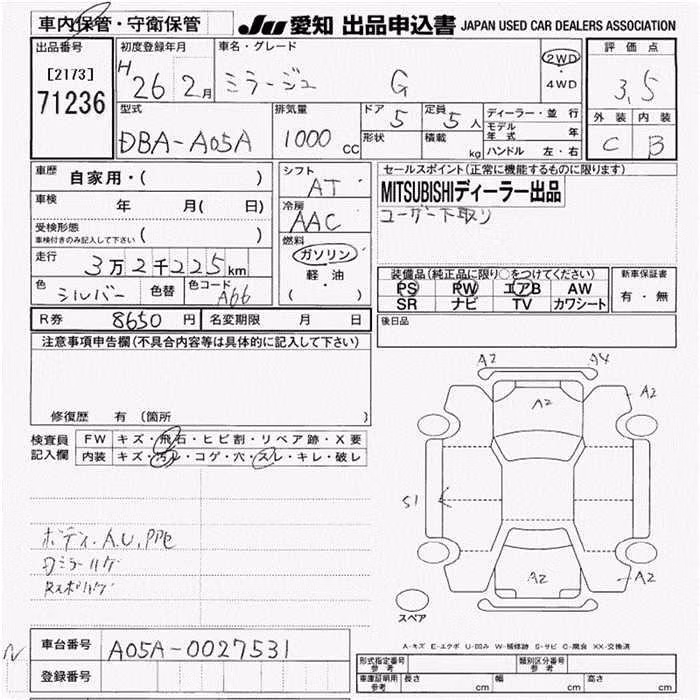 車内保管・守衛保管
JU 愛知 出品申込書 JAPAN USED CAR DEALERS ASSOCIATION
出品番号 初度登録年月 車名・グレード 評価点
[2173] 71236
H 26 2月 ミラージュ G 2WD・4WD 3.5
型式 排気量 ドア 5 定員 5人 ディーラー・並行 外装 内装
DBA-A05A 1000cc 形状 積載 kg モデル年式 年 C B
ハンドル 左・右
車歴 自家用・( ) シフト AT セールスポイント(正常に機能するものに限ります)
車検 年 月( 日) 冷房 AAC MITSUBISHIディーラー出品
受検形態 車検付きのみ記入して下さい ( ) 燃料 ユーザー下取り
走行 3万2千225km ガソリン・軽油・( )
色 シルバー 色替 色コード A66
装備品(純正品に限り○をつけてください) 新車保証書
PS PW エアB AW 有・無
SR ナビ TV カワシート
R券 8650円 名変期限 月 日 後日品
注意事項申告欄(不具合内容等は具体的に記入して下さい)
修復歴 有 (箇所 )
検査員記入欄 FW キズ・飛石・ヒビ割・リペア跡・X要
内装 キズ・汚レ・コゲ・穴・スレ・キレ・破レ
A2 A4
A2 A2
S1
A2 A2
ボディ、A.U.PPE
Dミラーハゲ
スペア
A-キズ E-エクボ U-凹み W-補修跡 S-サビ C-腐食 XX-交換済
車台番号 A05A-0027531
登録番号
形式指定番号 参考 類別区分番号 参考
車庫証明用 参考 長さ cm 幅 cm 高さ cm